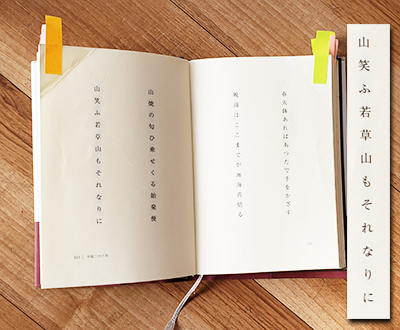 春火鉢あればあつたで手をかざす
晩鐘はここまでか無海苔切る
山焼の匂ひ乗せくる始発便
山笑ふ若草山もそれなりに
山笑ふ若草山もそれなりに